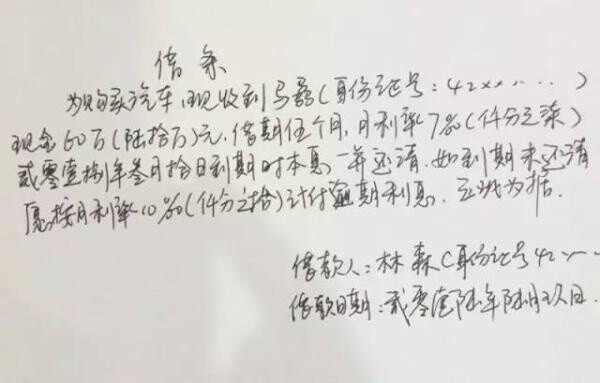 借条
为购买汽车,现收到马磊(身份证号:42xx……)
现金60万(陆拾万)元,借期伍个月,月利率7‰(仟分之柒)
贰零壹捌年叁月拾日到期时本息一并还清.如到期未还清
愿按月利率10‰(仟分之拾)计付逾期利息.立此为据.
借款人:林森(身份证号42……
借款日期:贰零壹陆年陆月玖日.